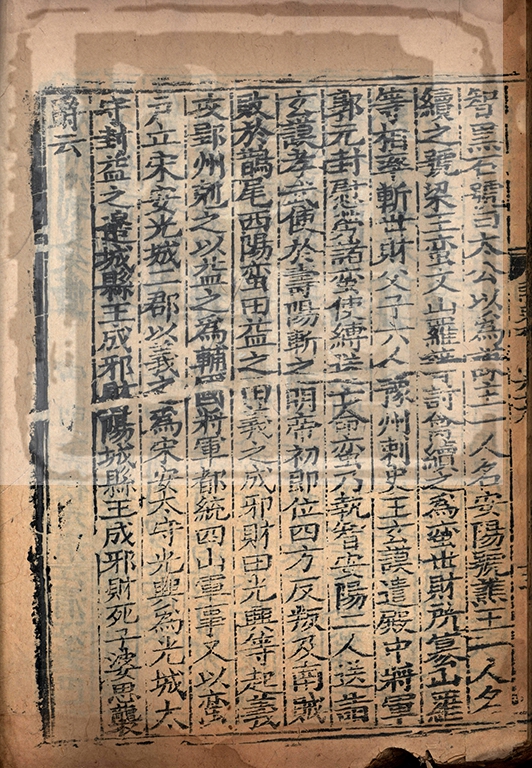 智黑石號曰太公以為謀主一人名安陽號譙王一人名
續之號梁王蛮文山羅等討禽續之為蛮世財所篡山羅
等相率斬世財父子六人豫州刺史王玄謨遣殿中將軍
郭元封慰勞諸蛮使縛送亡命蛮乃執智安陽二人送詣
玄謨孝武使於壽陽斬之明帝初即位四方反叛及南賊
敗於鵲尾西陽蛮田益之田義之成邪財田光興等起義
攻郢州剋之以益之為輔國將軍都統四山軍事又以蛮
戶立宋安光城二郡以義之為宋安太守光興為光城太
守封益之邊城縣王成邪財陽城縣王成邪財死子婆思襲
爵云